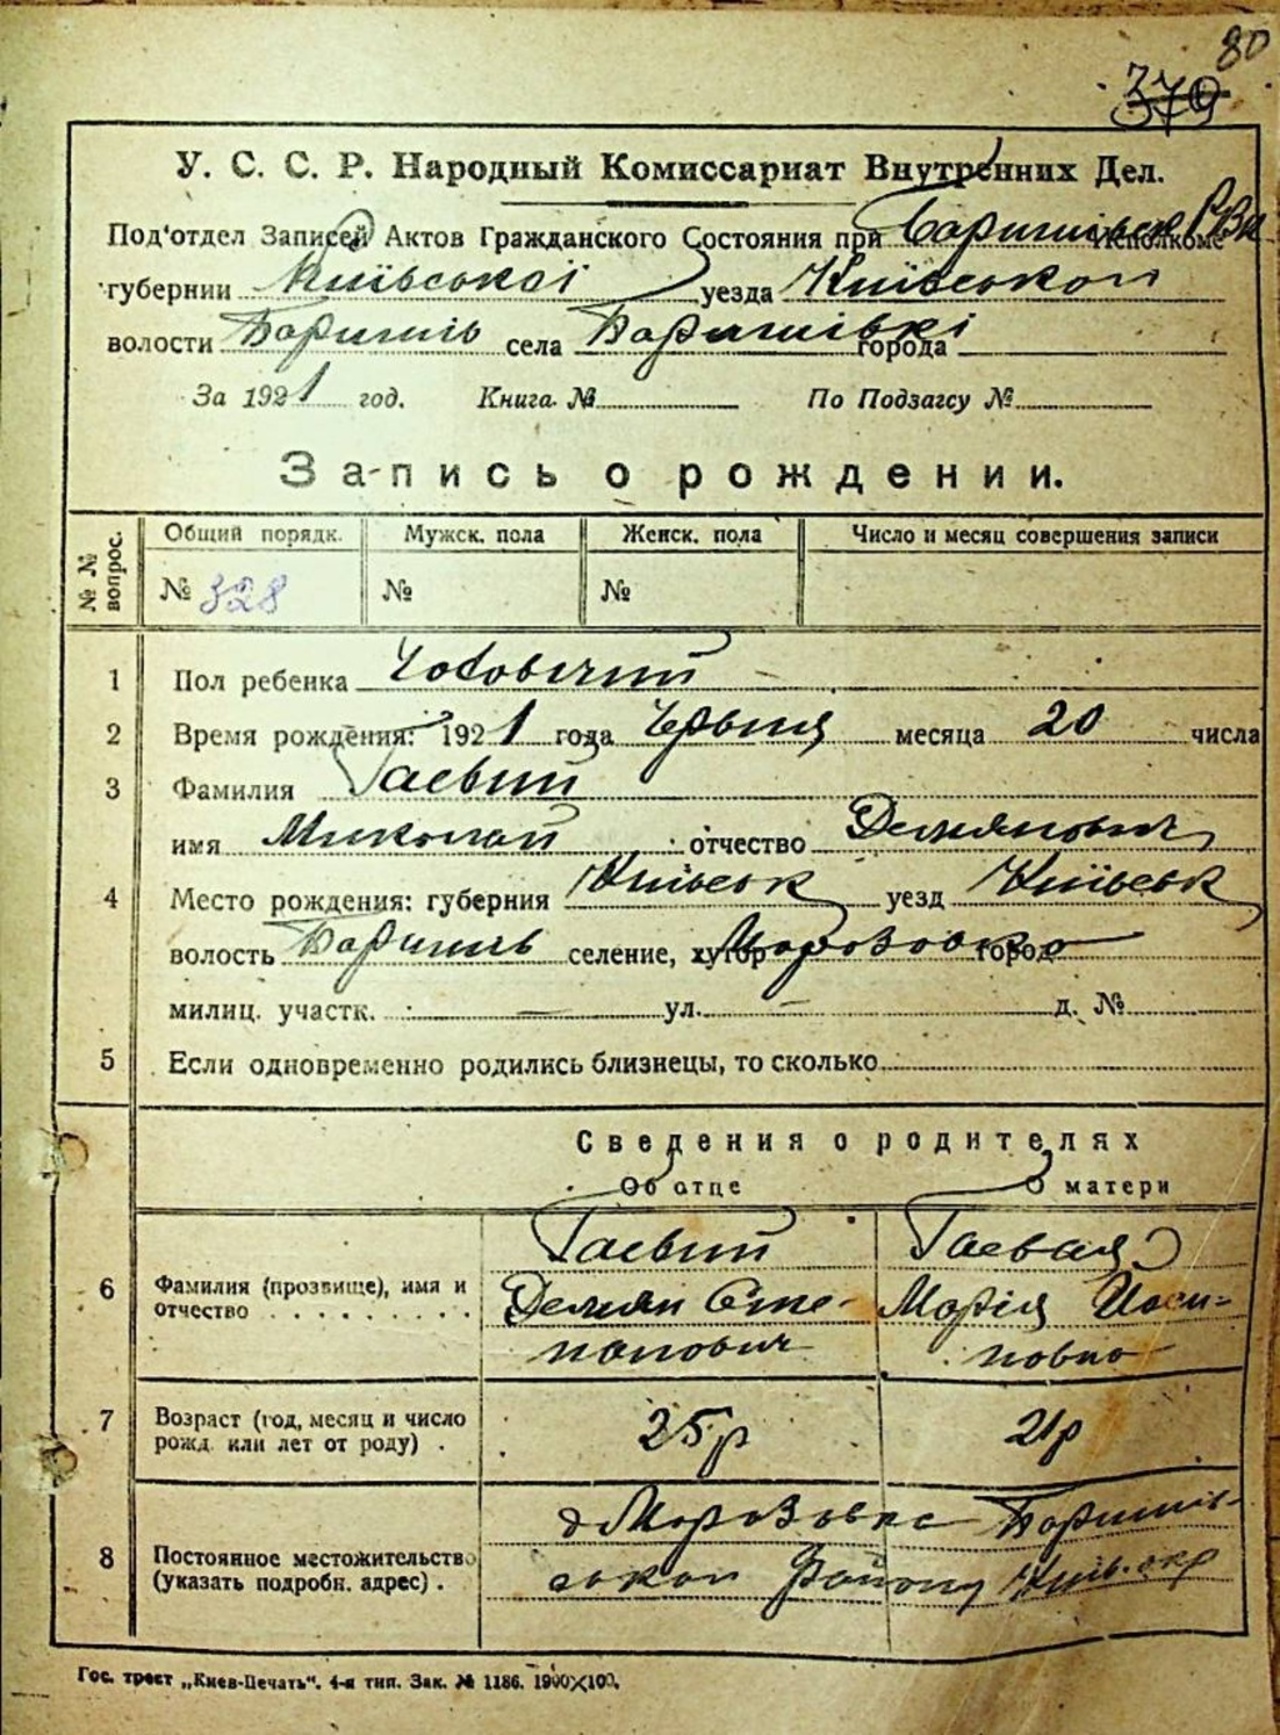 80
379
У. С. С. Р. Народный Комиссариат Внутренних Дел.
Под'отдел Записей Актов Гражданского Состояния при Баришівськ РВК Исполкоме
губернии Київської уезда Київського
волости Баришів села Баришівкі города
За 1921 год. Книга № По Подзагсу №
Запись о рождении.
№ № вопрос. Общий порядк. Мужск. пола Женск. пола Число и месяц совершения записи
№ 328 № №
1 Пол ребенка Чоловічий
2 Время рождения: 1921 года Червня месяца 20 числа
3 Фамилия Гаевий
имя Миколай отчество Демянович
4 Место рождения: губерния Київськ уезд Київськ
волость Баришів селение, хутор Морозовка город
милиц. участк. — ул. — д. №
5 Если одновременно родились близнецы, то сколько
Сведения о родителях
Об отце О матери
6 Фамилия (прозвище), имя и отчество
Гаевий Гаевая
Демян Сте- Марія Йоси-
панович повна
7 Возраст (год, месяц и число рожд. или лет от роду) . 25р 21р
8 Постоянное местожительство (указать подробн. адрес) .
Морозовка Баришів-
ського Району Київ. окр
Гос. трест „Киев-Печать". 4-я тип. Зак. № 1186. 1900×100.